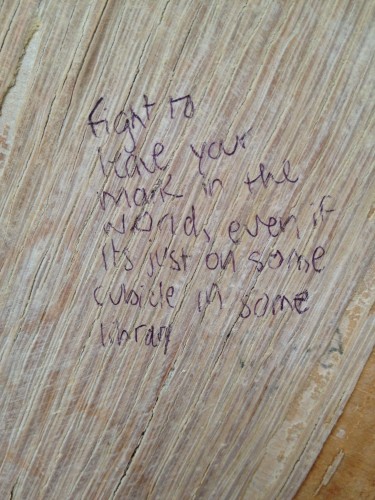 fight to
leave your
mark in the
world, even if
its just on some
cubicle in some
library